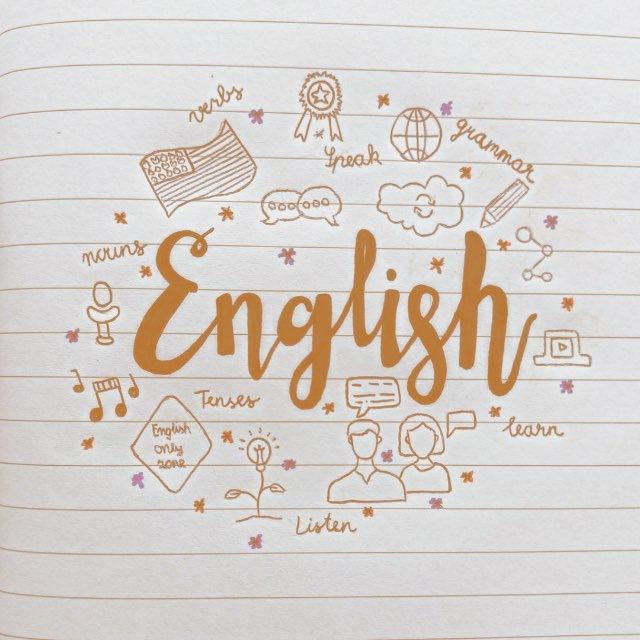 verbs
grammar
Speak
nouns
English
Tenses
English
only
zone
learn
Listen